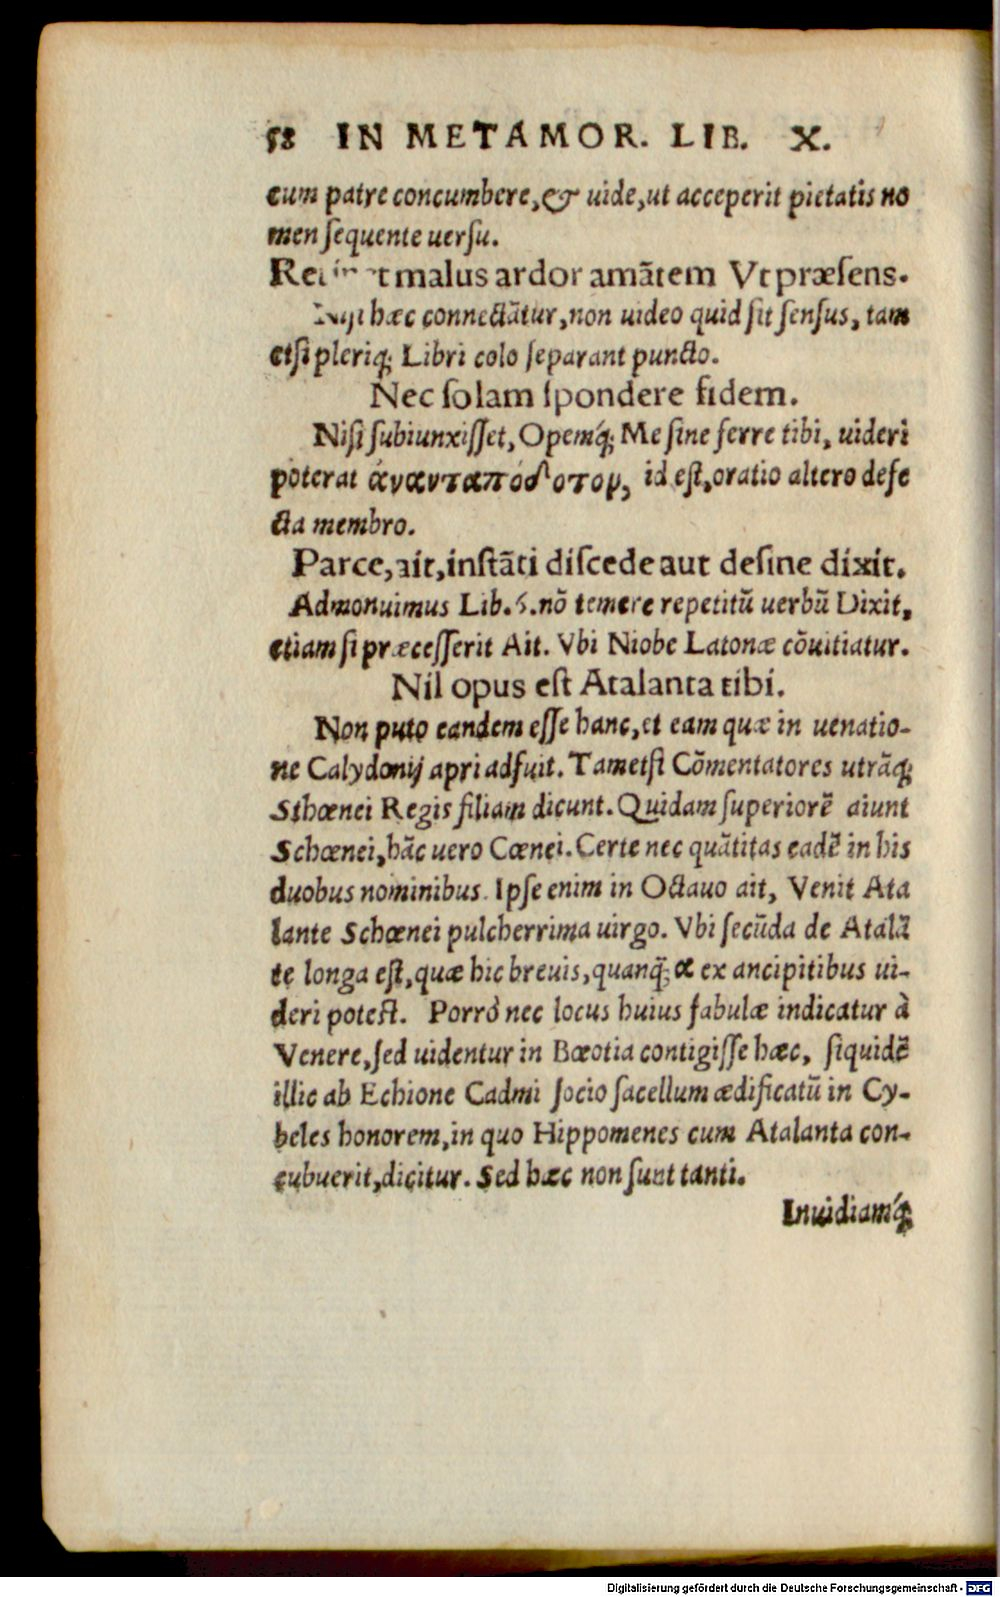 58 IN METAMOR. LIB. X.
cum patre concumbere, & uide, ut acceperit pietatis no
men sequente uersu.
malus ardor amātem Vt præsens.
hæc connectātur, non uideo quid sit sensus, tam
etsi pleriq; Libri colo separant puncto.
Nec solam spondere fidem.
Nisi subiunxisset, Opemq́; Me sine ferre tibi, uideri
poterat ἀνανταπόδοτον, id est, oratio altero defe
cta membro.
Parce, ait, instāti discede aut desine dixit.
Admonuimus Lib. 6. nō temere repetitū uerbū Dixit,
etiam si præcesserit Ait. Vbi Niobe Latonæ cōuitiatur.
Nil opus est Atalanta tibi.
Non puto eandem esse hanc, et eam quæ in uenatio-
ne Calydonij apri adfuit. Tametsi Cōmentatores utrāq;
Sthœnei Regis filiam dicunt. Quidam superiorē aiunt
Schœnei, hāc uero Cœnei. Certe nec quātitas eadē in his
duobus nominibus. Ipse enim in Octauo ait, Venit Ata
lante Schœnei pulcherrima uirgo. Vbi secūda de Atalā
te longa est, quæ hic breuis, quanq̃; α ex ancipitibus ui-
deri potest. Porrò nec locus huius fabulæ indicatur à
Venere, sed uidentur in Bœotia contigisse hæc, siquidē
illic ab Echione Cadmi socio sacellum ædificatū in Cy-
beles honorem, in quo Hippomenes cum Atalanta con-
cubuerit, dicitur. Sed hæc non sunt tanti.
Inuidiamq́;
Digitalisierung gefördert durch die Deutsche Forschungsgemeinschaft - DFG